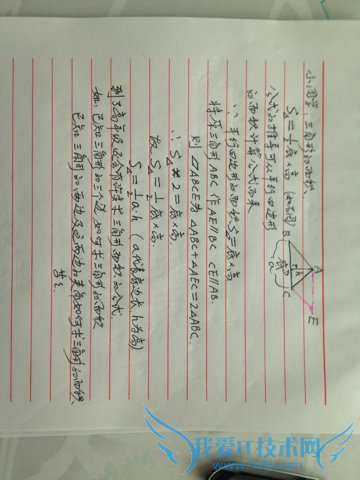 小同学:三角形的面积:
S△=½底×高 (如右图)
公式的推导可从平行四边形
的面积计算公式而来
∵平行四边形的面积S=底×高
将原三角形ABC, 作AE∥BC CE∥AB.
则 ▱ABCE为 △ABC+△AEC=2△ABC.
∴ S△×2=底×高
故S△=½底×高.
S△=½a·h (a代表底边长,h为高)
到了高年级还会有许多求三角形面积的公式.
如:已知三角形的三个边,如何求三角形的面积
已知三角形的两边及这两边的夹角如何求三角形的面积
等等.
A
B
C
E
h
高
底
a
我爱IT技术网